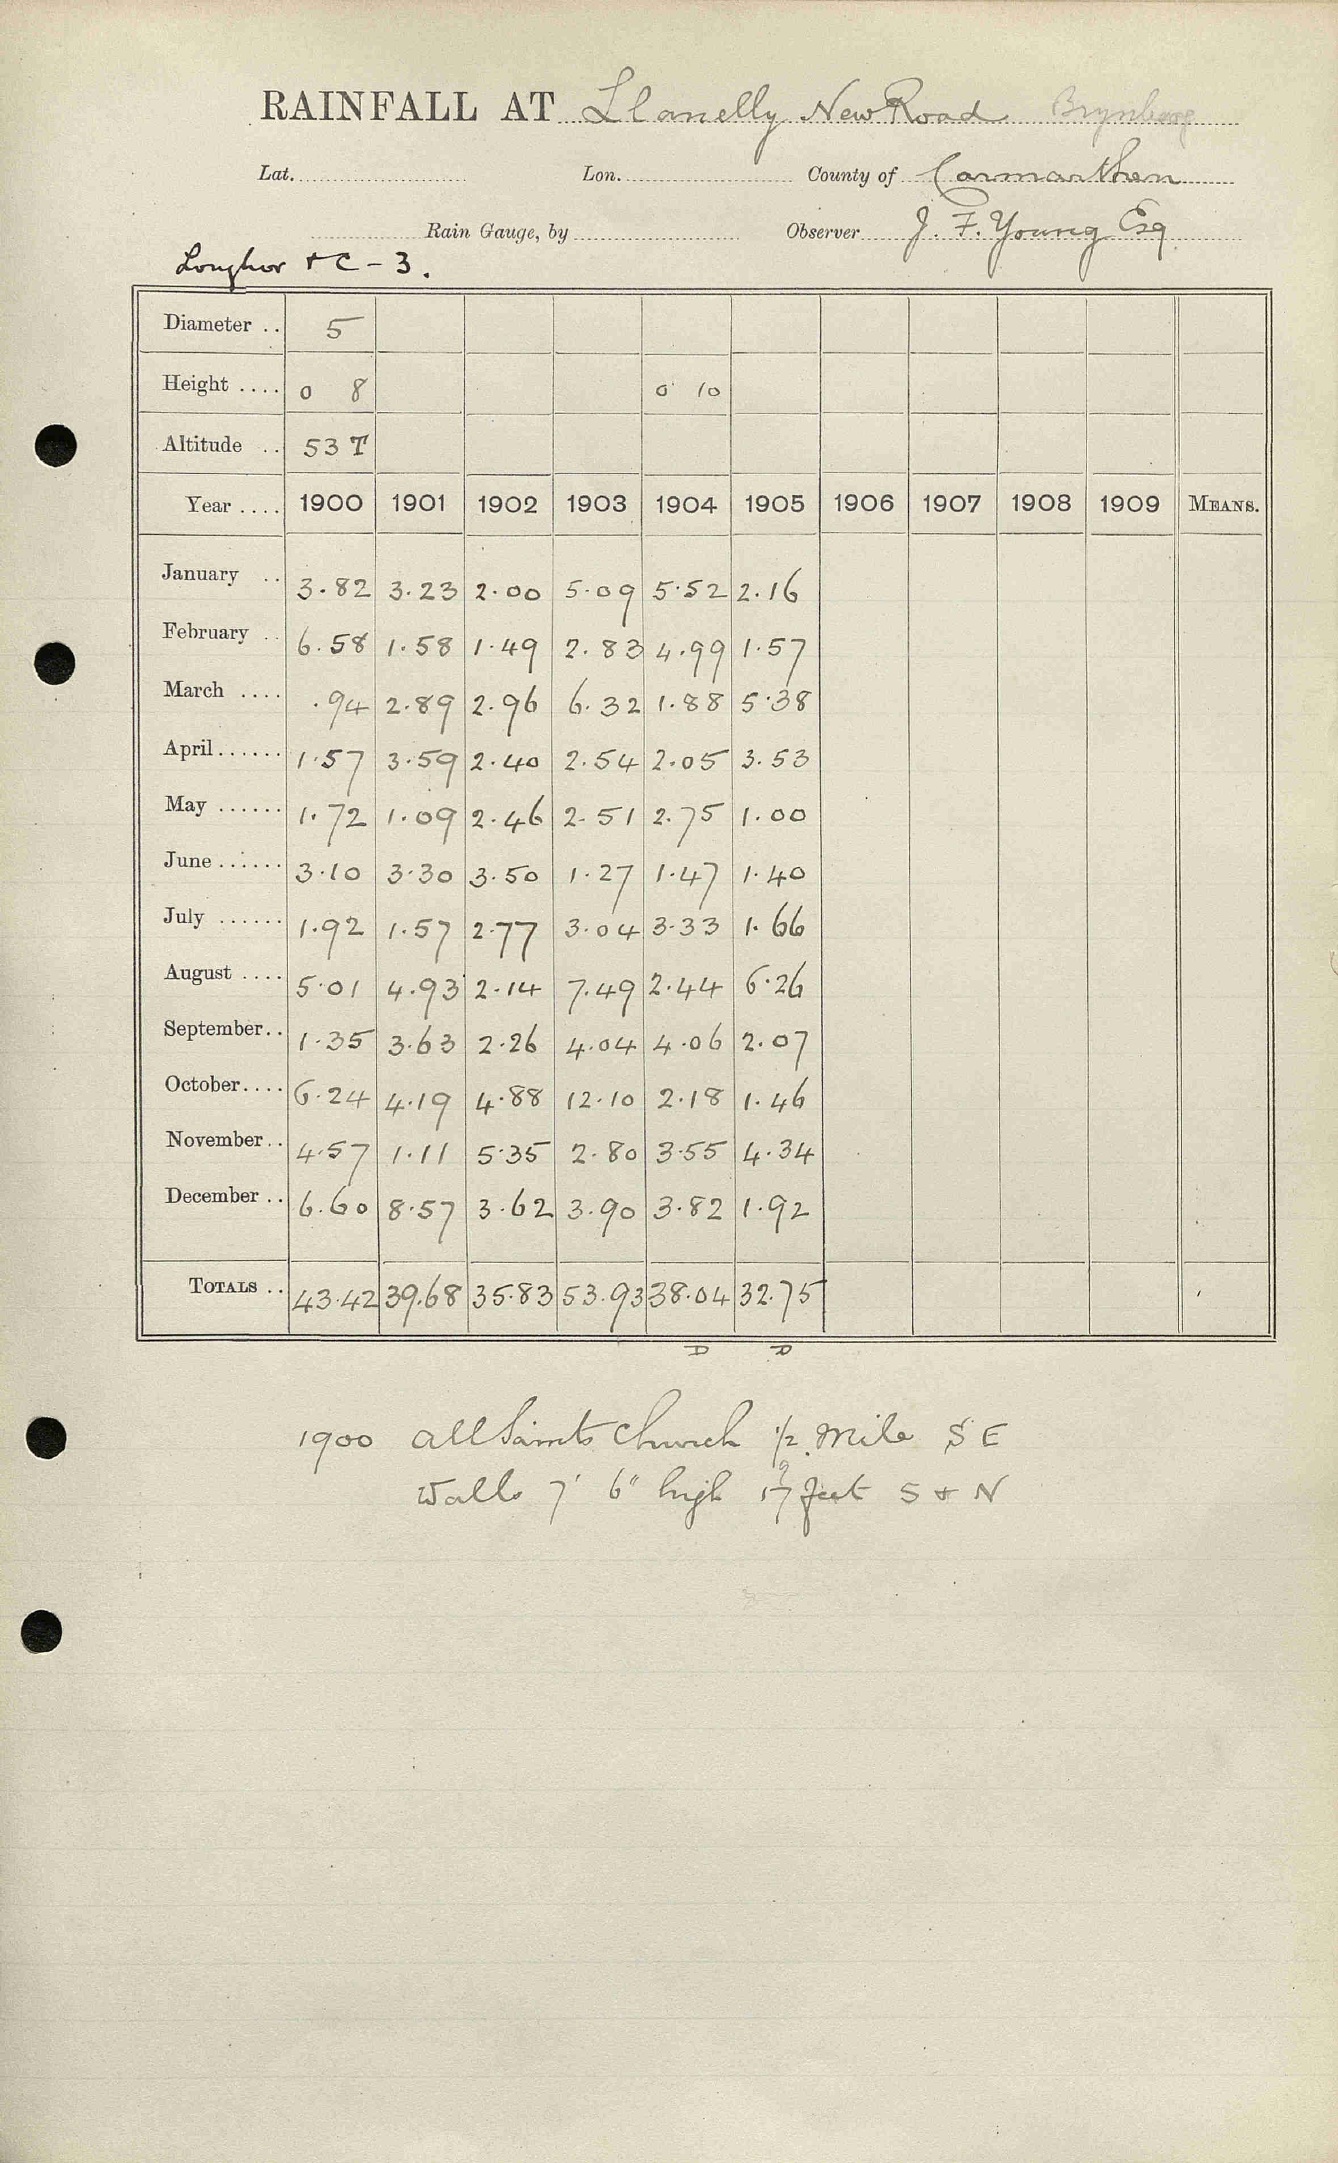 RAINFALL AT Llanelly New Road
Lat. Lon. County of Carmarthen
Rain Gauge, by Observer J. F. Young Esq
Loughor + C - 3.
Diameter .. 5
Height .... 0 8 0 10
Altitude .. 53 T
Year .... 1900 1901 1902 1903 1904 1905 1906 1907 1908 1909 MEANS.
January .. 3.82 3.23 2.00 5.09 5.52 2.16
February .. 6.58 1.58 1.49 2.83 4.99 1.57
March .... .94 2.89 2.96 6.32 1.88 5.38
April ...... 1.57 3.59 2.40 2.54 2.05 3.53
May ...... 1.72 1.09 2.46 2.51 2.75 1.00
June ...... 3.10 3.30 3.50 1.27 1.47 1.40
July ...... 1.92 1.57 2.77 3.04 3.33 1.66
August .... 5.01 4.93 2.14 7.49 2.44 6.26
September.. 1.35 3.63 2.26 4.04 4.06 2.07
October.... 6.24 4.19 4.88 12.10 2.18 1.46
November.. 4.57 1.11 5.35 2.80 3.55 4.34
December .. 6.60 8.57 3.62 3.90 3.82 1.92
TOTALS .. 43.42 39.68 35.83 53.93 38.04 32.75
D D
1900 All Saints Church 1/2 Mile S E
Walls 7' 6" high 17 feet S + N